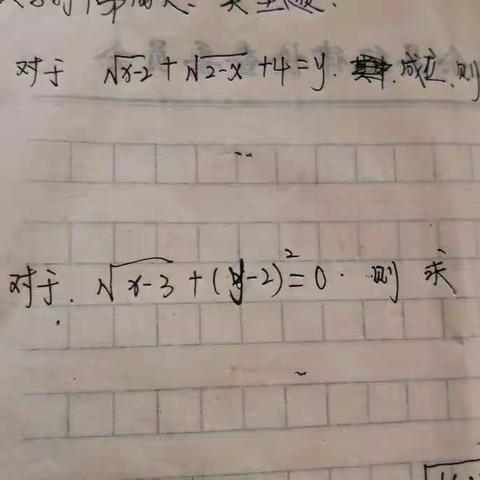 对于 √x-2 + √2-x +4=y. 成立,则
对于. √x-3 + (y-2)²=0. 则 求